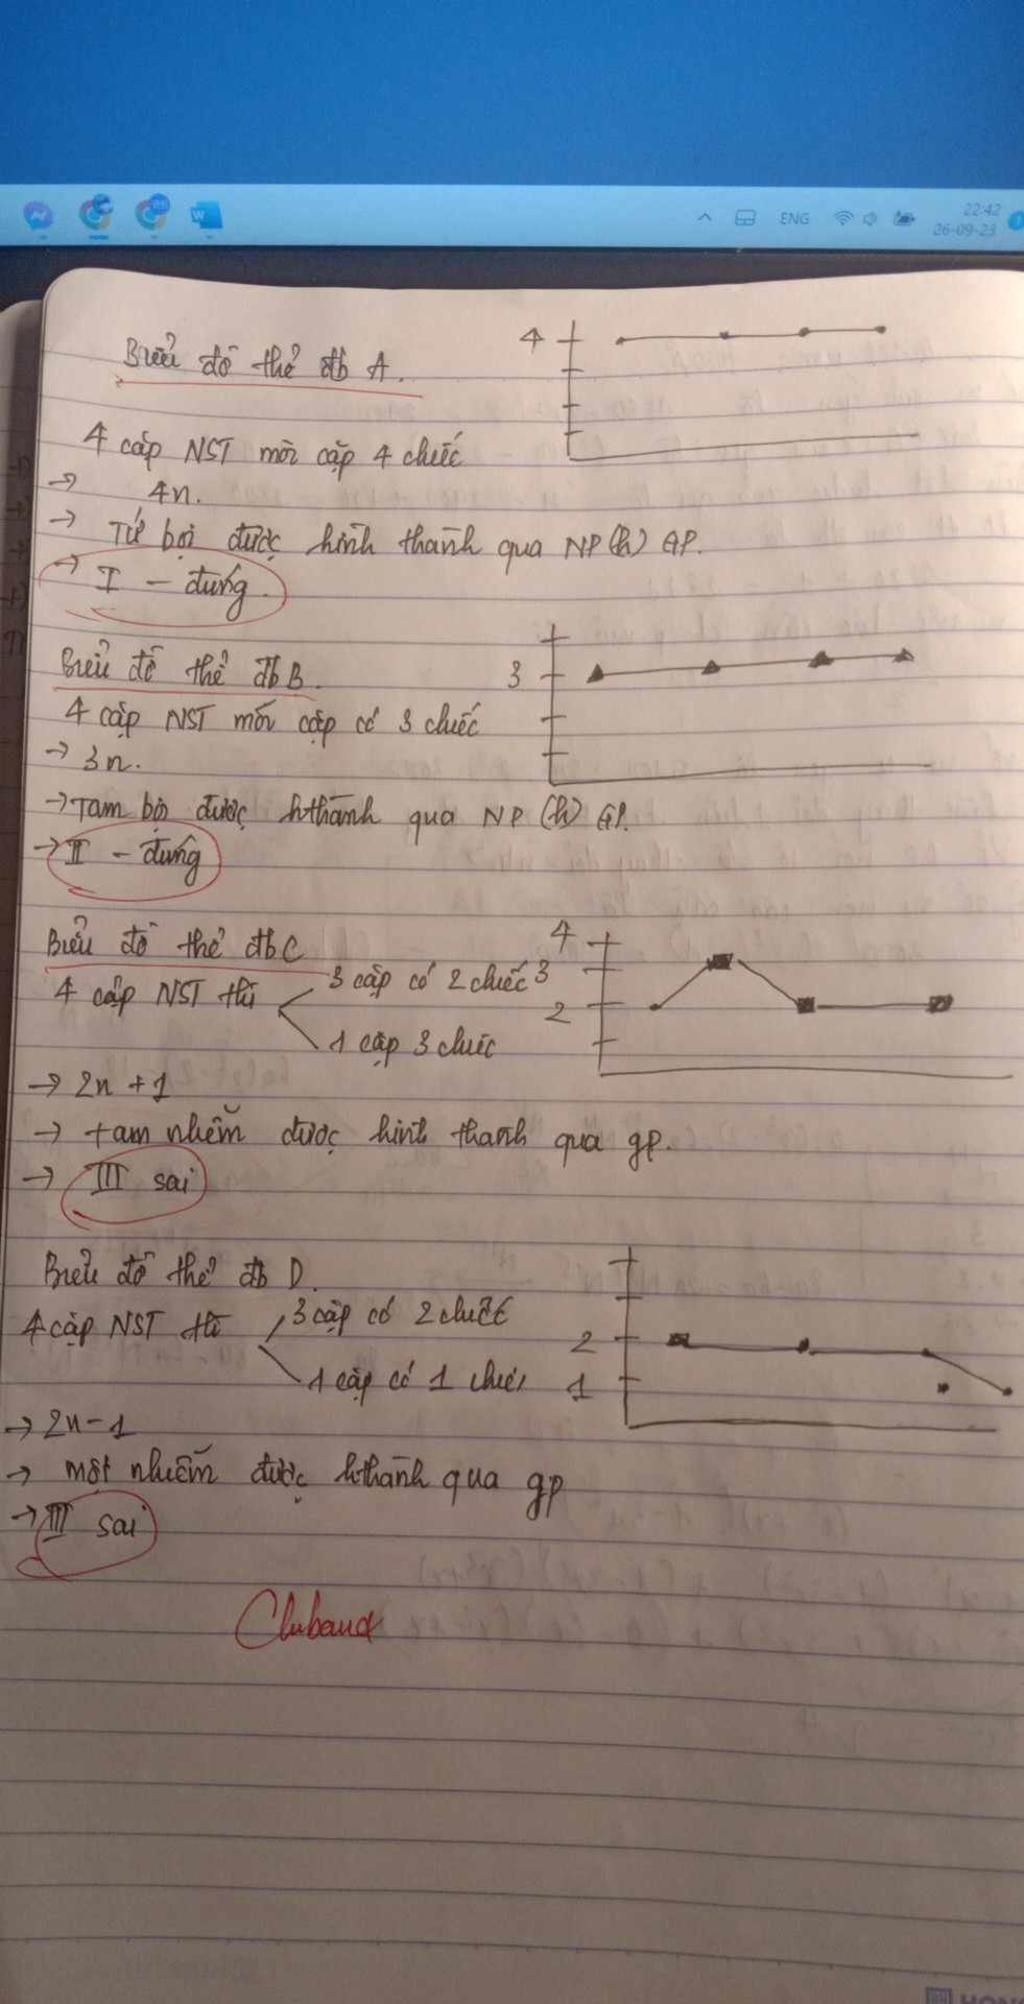 ENG
22:42
26-09-23
Biểu đồ thể đb A.
4
4 cặp NST mỗi cặp 4 chiếc
→ 4n.
→ Tứ bội được hình thành qua NP (h) GP.
→ I - đúng.
Biểu đồ thể đb B.
3
4 cặp NST mỗi cặp có 3 chiếc
→ 3n.
→ Tam bội được hthành qua NP (h) GP.
→ II - đúng
Biểu đồ thể đb C
4
3
2
4 cặp NST thì
3 cặp có 2 chiếc
1 cặp 3 chiếc
→ 2n + 1
→ tam nhiễm được hình thành qua gp.
→ III sai
Biểu đồ thể đb D.
2
1
4 cặp NST thì
3 cặp có 2 chiếc
1 cặp có 1 chiếc
→ 2n-1
→ một nhiễm được hthành qua gp
→ III sai